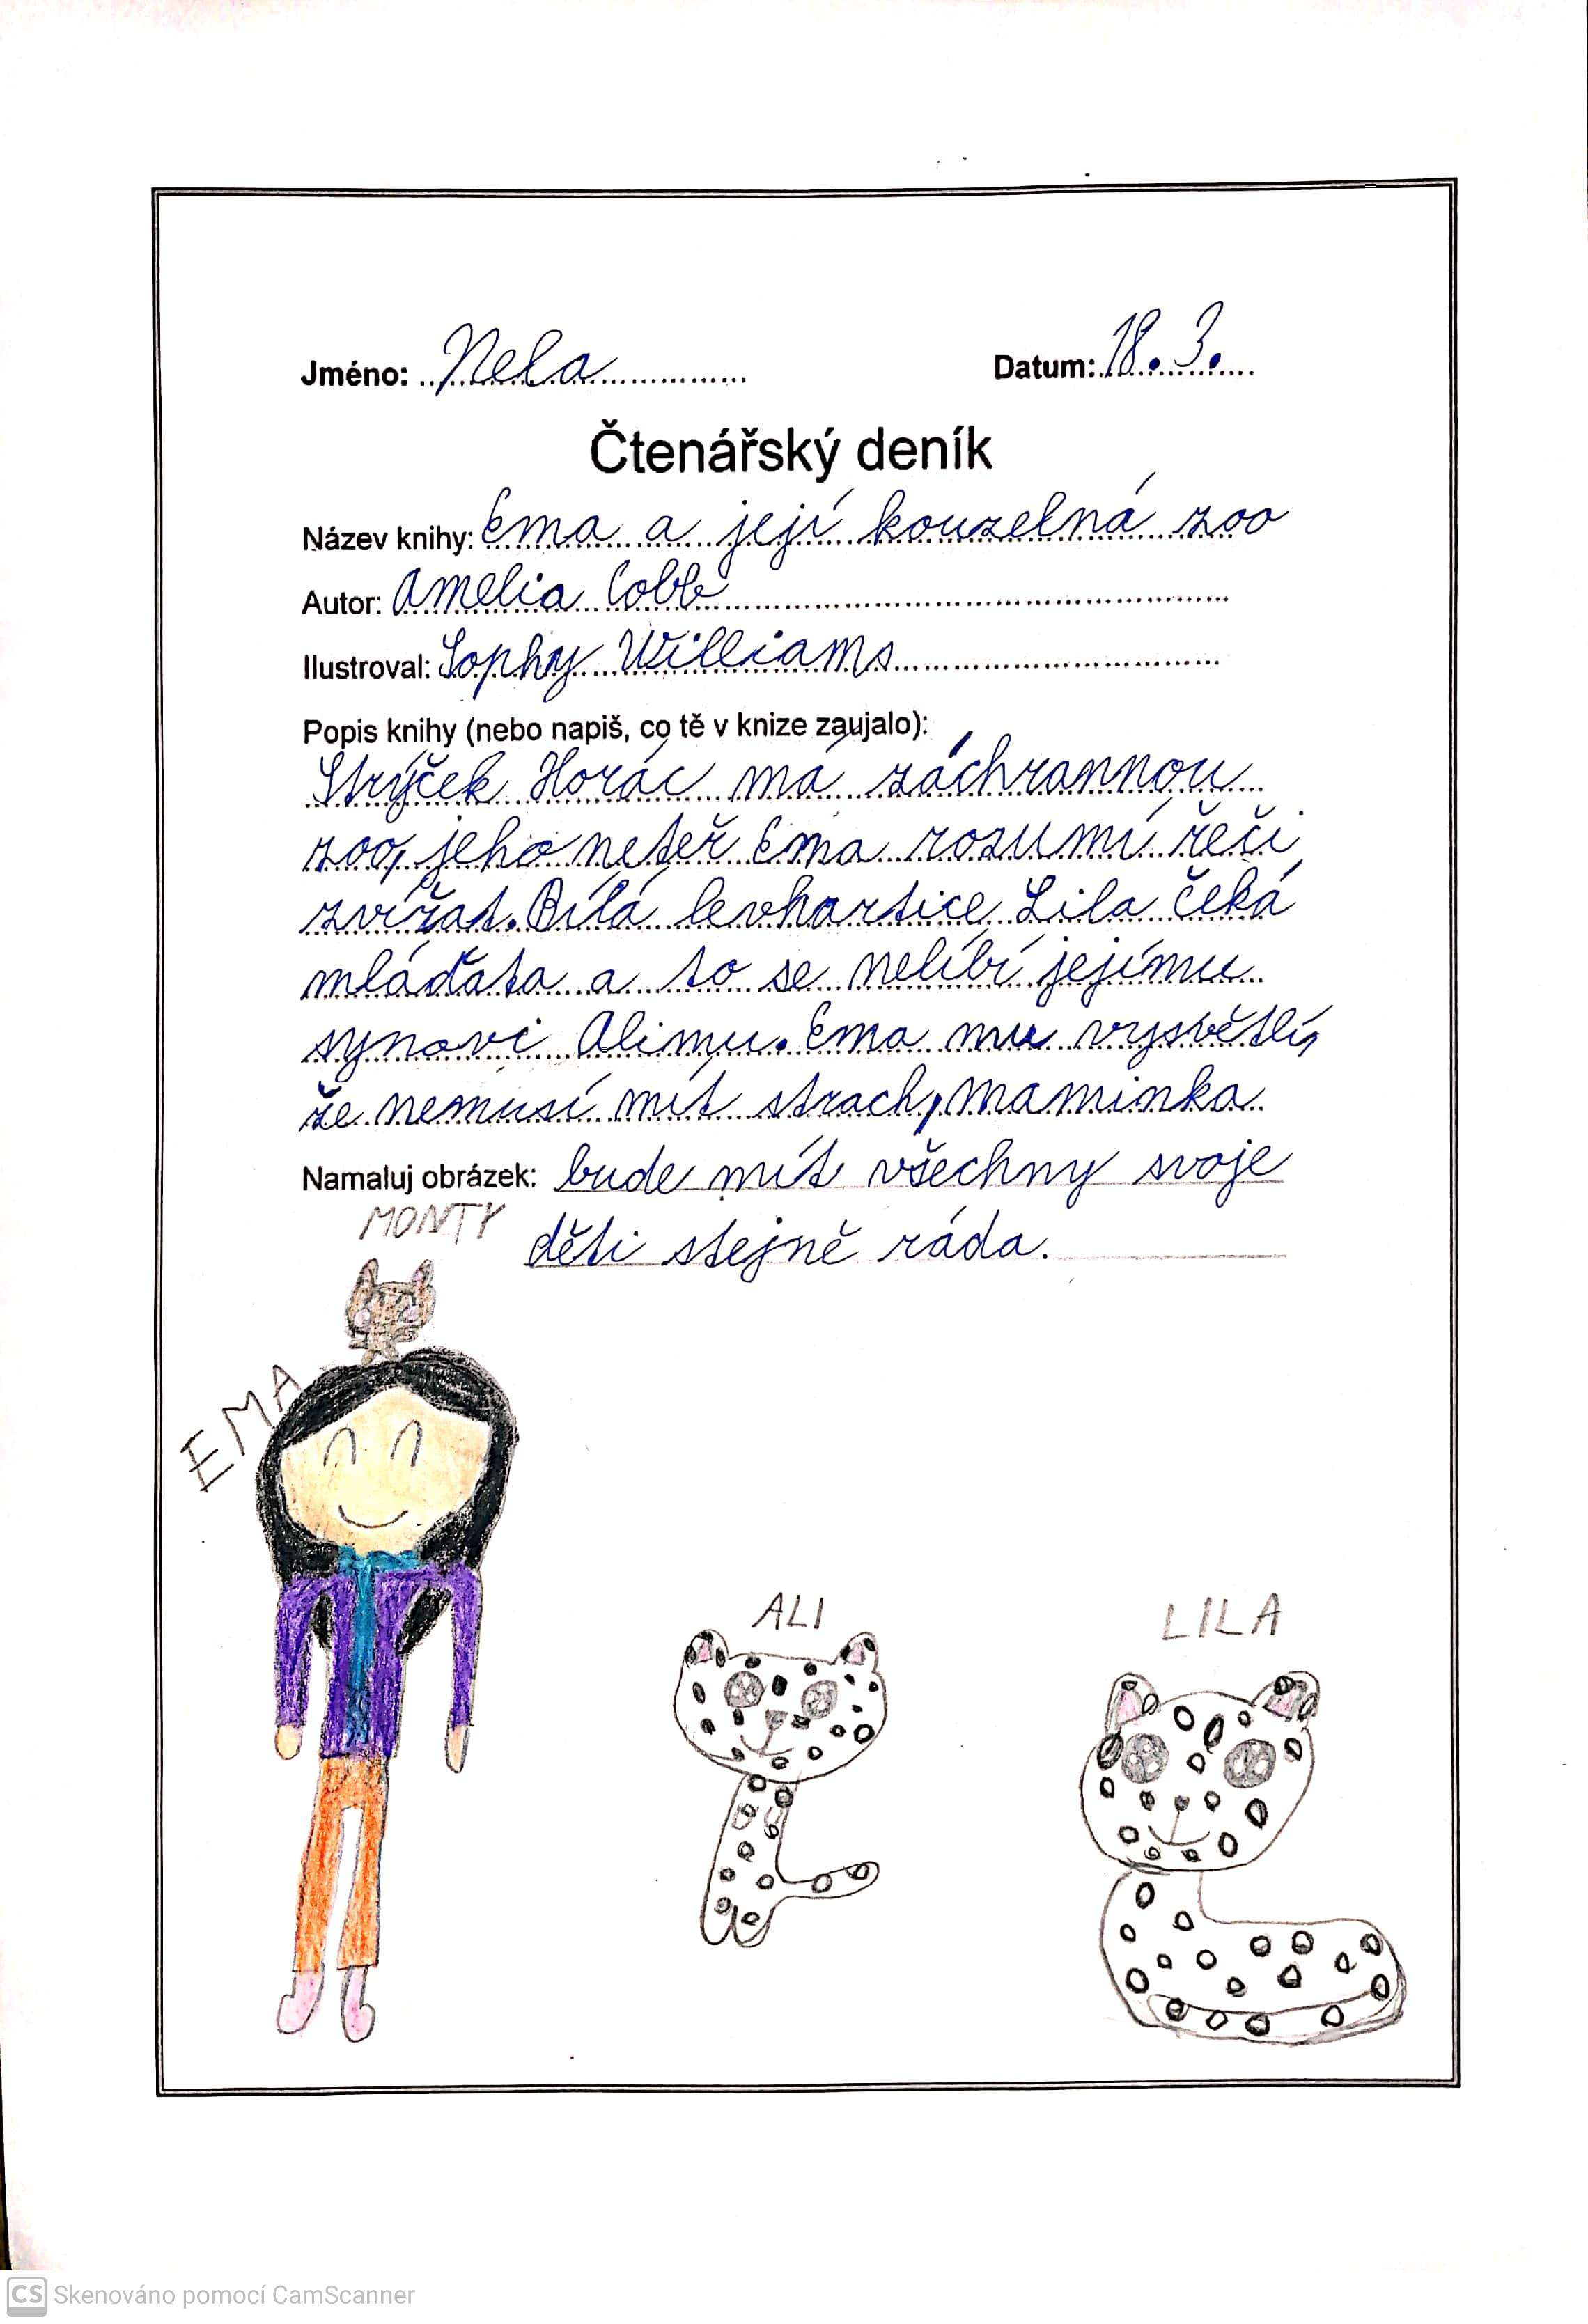 Jméno: Nela Datum: 18. 3.
Čtenářský deník
Název knihy: Ema a její kouzelná zoo
Autor: Amelia Cobb
Ilustroval: Sophy Williams
Popis knihy (nebo napiš, co tě v knize zaujalo):
Strýček Horác má záchrannou
zoo, jeho neteř Ema rozumí řeči
zvířat. Bílá levhartice Lila čeká
mláďata a to se nelíbí jejímu
synovi Alimu. Ema mu vysvětlí,
že nemusí mít strach, maminka
Namaluj obrázek: bude mít všechny svoje
děti stejně ráda.
MONTY
EMA
ALI
LILA
CS Skenováno pomocí CamScanner